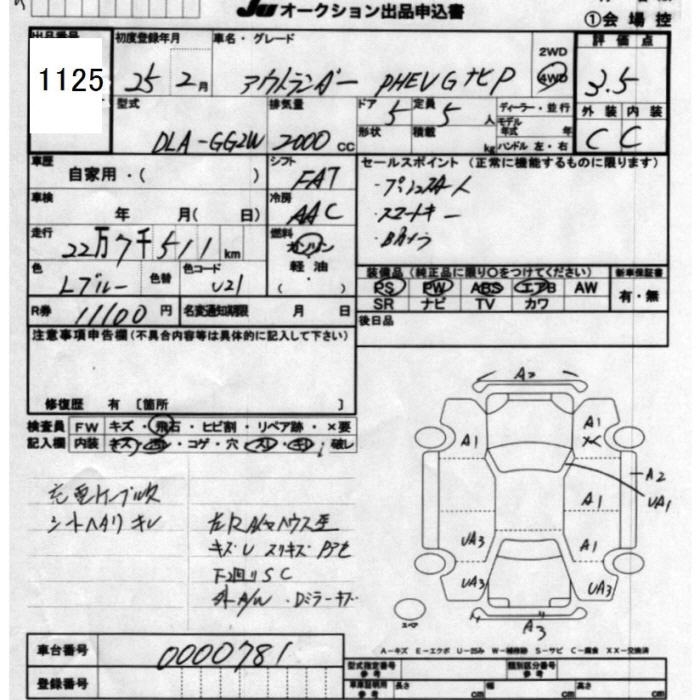 JU オークション出品申込書
①会場控
出品番号 1125
初度登録年月 25年 2月
車名・グレード アウトランダー PHEV G ナビ P
2WD
4WD
評価点 3.5
型式 DLA-GG2W
排気量 2000 CC
ドア 5
定員 5 人
形状
積載 kg
ディーラー・並行
モデル年式 年
ハンドル 左・右
外装 内装
C C
車歴 自家用・( )
シフト FAT
セールスポイント (正常に機能するものに限ります)
・プッシュスタート
・スマートキー
・Bカメラ
車検 年 月( 日)
冷房 AAC
走行 22万7千511 km
燃料 ガソリン
軽油
( )
色 Lブルー
色替
色コード U21
装備品 (純正品に限り〇をつけてください)
PS PW ABS エアB AW
SR ナビ TV カワ
新車保証書
有・無
R券 11100 円
名変通知期限 月 日
後日品
注意事項申告欄 (不具合内容等は具体的に記入して下さい)
修復歴 有 〔箇所 〕
検査員 FW キズ・飛石・ヒビ割・リペア跡・×要
記入欄 内装 キズ・汚・コゲ・穴・スレ・キレ・破レ
充電ケーブル欠
シートヘタリ キレ
キズU スリキズ
F2廻りSC
外A/W ・Dミラーキズ
A2
A1
A1
A2
A1
UA1
UA3
A1
UA3
UA3
A3
スペア
A-キズ E-エクボ U-凹み W-補修跡 S-サビ C-腐食 XX-交換済
車台番号 0000781
登録番号
型式指定番号 参考
類別区分番号 参考
車庫証明用 参考
長さ cm
幅 cm
高さ cm